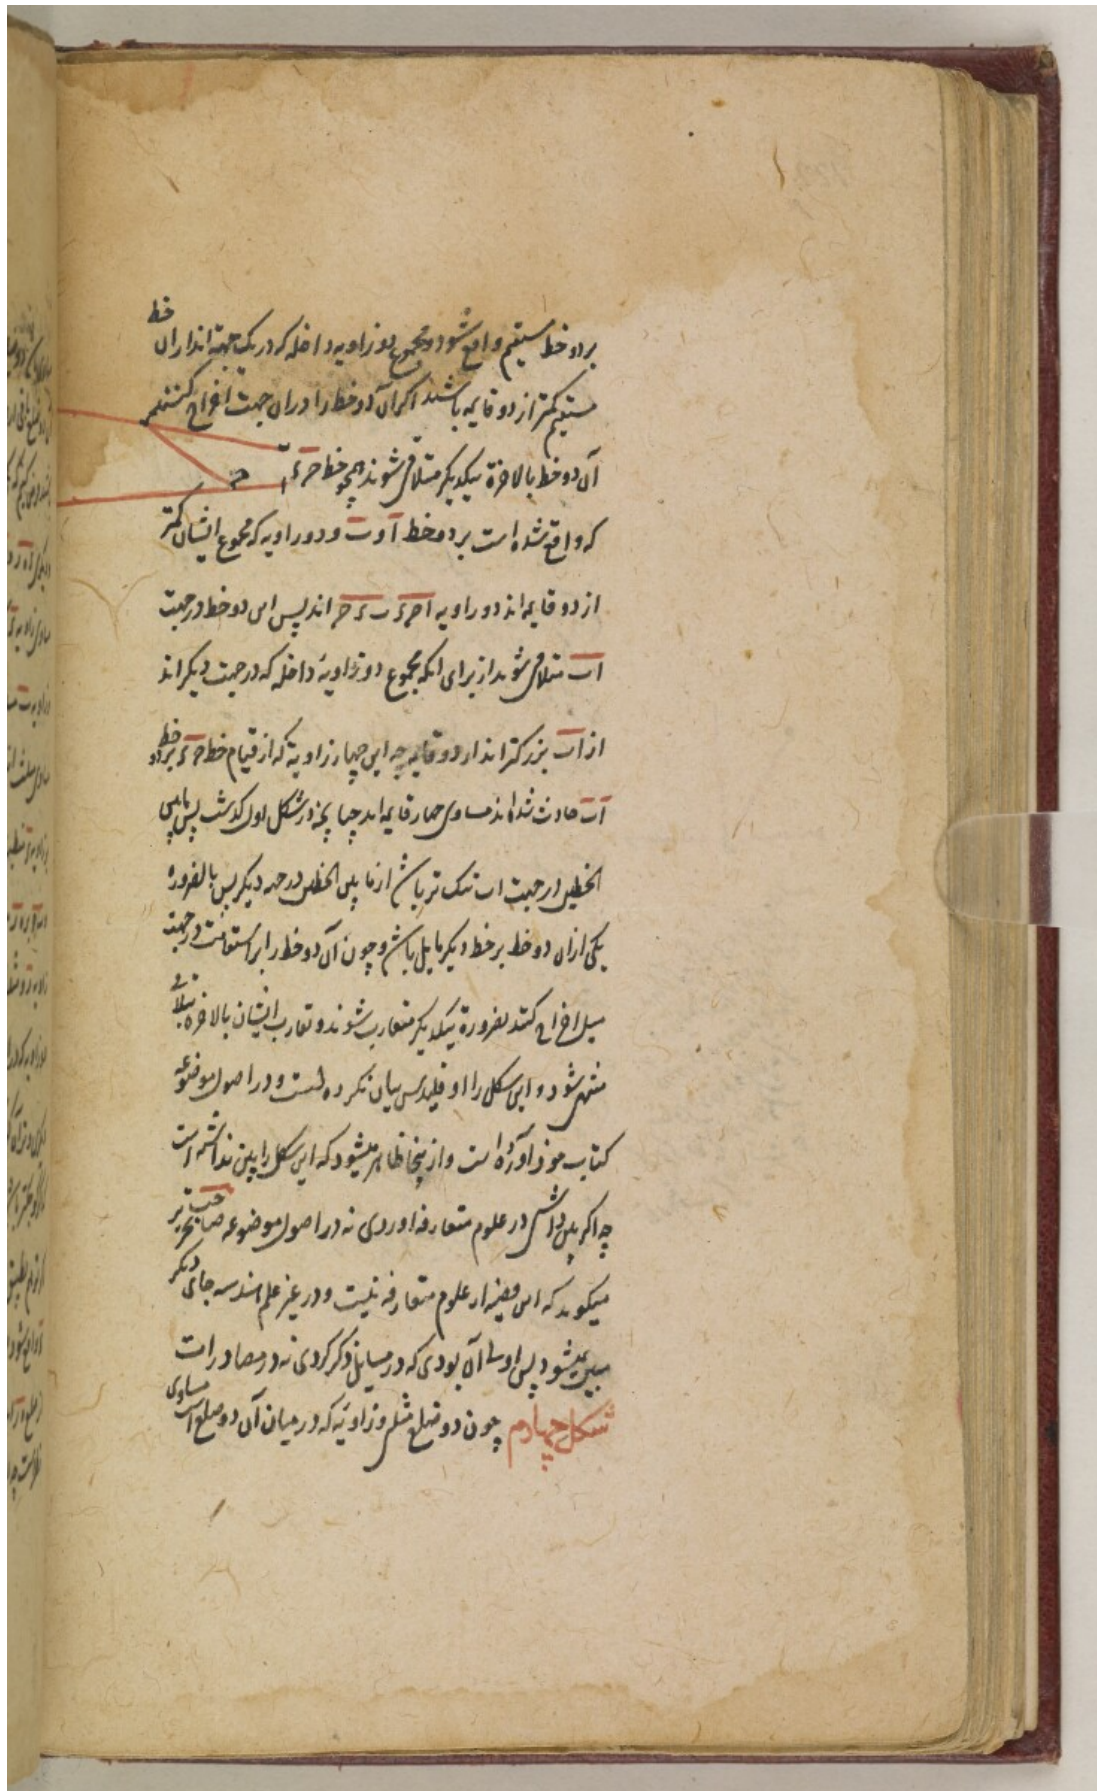 بر دو خط مستقیم واقع شود و مجموع دو زاویه داخله که در یک جهة اند ازان خط
مستقیم کمتر از دو قایمه باشند اکر آن دو خط را دران جهت اخراج کنند
آن دو خط بالاخرة بیکدیکر متلاقی شوند همچو خط حرء
که واقع شده است بر دو خط آ و ب و دو زاویه که مجموع ایشان کمتر
از دو قایمه اند دو زاویه احرء ب ء حر اند پس این دو خط در جهت
اب متلاقی شوند از برای انکه مجموع دو زاویهٔ داخله که در جهت دیکر اند
از اب بزرکتر اند از دو قایمه چه این چهار زاویة که از قیام خط حرء بر دو خط
آب حادث شده اند مساوی چهار قایمه اند چنانچه در شکل اول کذشت پس مابین
الخطین در جهت اب تنک تر باشد از مابین الخطین در جهة دیکر پس بالضروره
یکی ازان دو خط بر خط دیکر مایل باشد و چون آن دو خط را بر استقامت در جهت
میل اخراج کنند بضرورة بیکدیکر متقارب شوند و تقارب ایشان بالاخره بتلاقی
منتهی شود و این شکل را اوقلیدس بیان نکرده است و در اصول موضوعه
کتاب خود آورده است و از ینجا ظاهر میشود که این شکل را بین نداشته است
چه اکر بین داشتی در علوم متعارفه اوردی نه در اصول موضوعه صاحب تحریر
میکوید که این قضیه از علوم متعارفه نیست و در غیر علم هندسه جای دیکر
مبین نمیشود پس اولی آن بودی که در مسایل ذکر کردی نه در مصادرات
شکل چهارم چون دو ضلع مثلثی و زاویه که در میان آن دو ضلع است مساوی